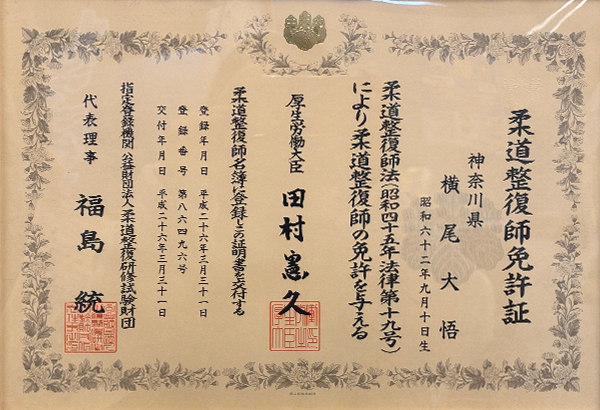 柔道整復師免許証
神奈川県
横尾大悟
昭和六十二年九月十日生
柔道整復師法(昭和四十五年法律第十九号)
により柔道整復師の免許を与える
厚生労働大臣 田村憲久
柔道整復師名簿に登録しこの証明書を交付する
登録年月日 平成二十六年三月三十一日
登録番号 第八六四九六号
交付年月日 平成二十六年三月三十一日
指定登録機関 公益財団法人柔道整復研修試験財団
代表理事 福島統